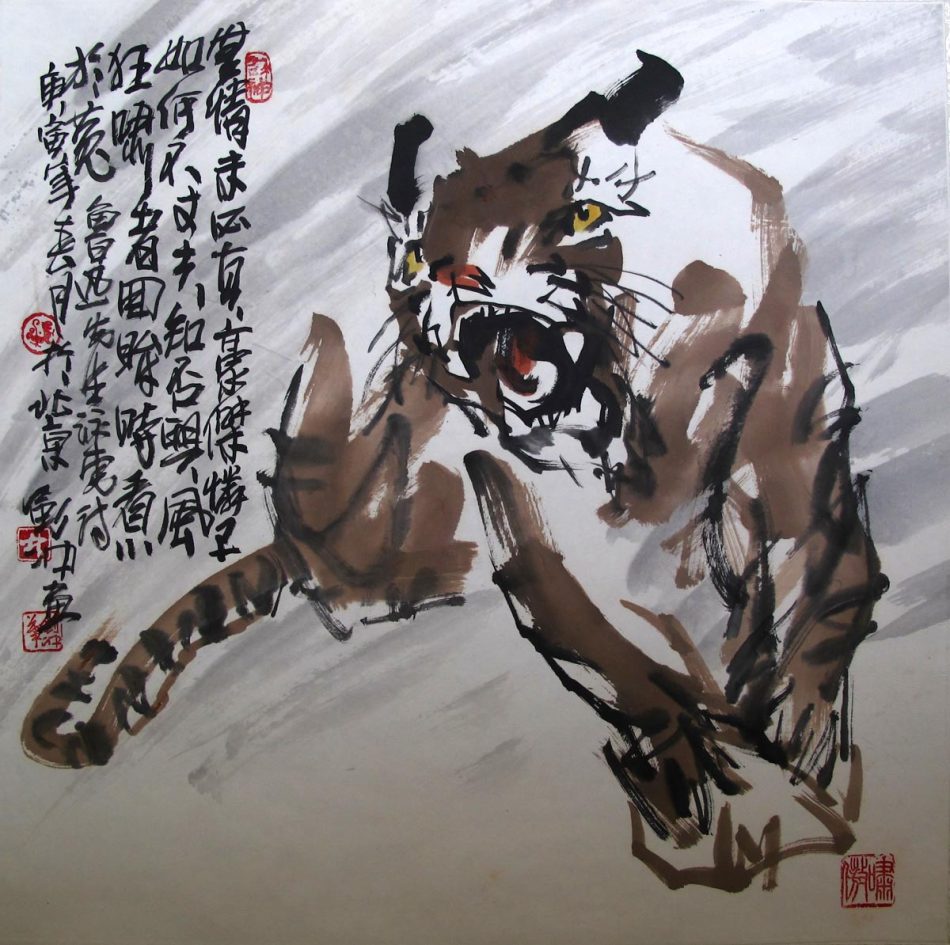 無情未必真豪傑憐子
如何不丈夫知否興風
狂嘯者回眸時看小
於菟 魯迅先生詠虎詩
庚寅年春月於北京 彭畫
嘯傲